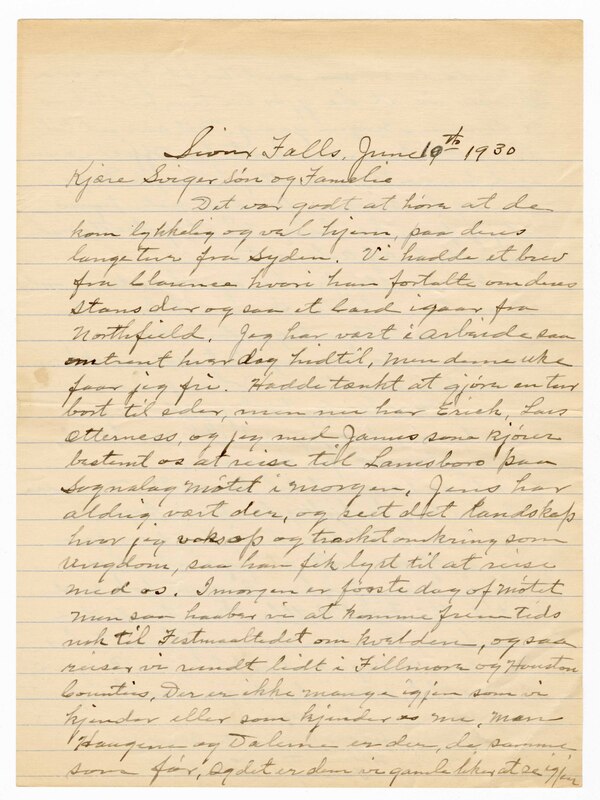 Sioux Falls, June 19th 1930
Kjære Sviger Søn og Familie
Det var godt at høre at de
kom lykkelig og vel hjem, paa deres
lange tur fra Syden. Vi hadde et brev
fra Clarence hvori han fortalte om deres
stans der og saa et Card igaar fra
Northfield. Jeg har vært i arbeide saa
omtrent hver dag hidtil, men denne uke
faar jeg fri. Hadde tænkt at gjøre en tur
bort til eder, men nu har Erick, Lars
Otterness, og jeg med James som kjører
bestemt os at reise til Lanesboro paa
Sognalag møtet i morgen, Jens har
aldrig vært der, og seet det landskap
hvor jeg voksop og trasket omkring som
Ungdom, saa han fik lyst til at reise
med os. I morgen er første dag of møtet
men saa haaber vi at komme frem tids
nok til Festmaaltedet om kvelden, og saa
reiser vi rundt lidt i Fillmore og Houston
Counties, Der er ikke mange igjen som vi
kjender eller som kjender os me, men
Haugene og Dalene er der, de samme
som før, og det er dem vi gamle liker at se igjen